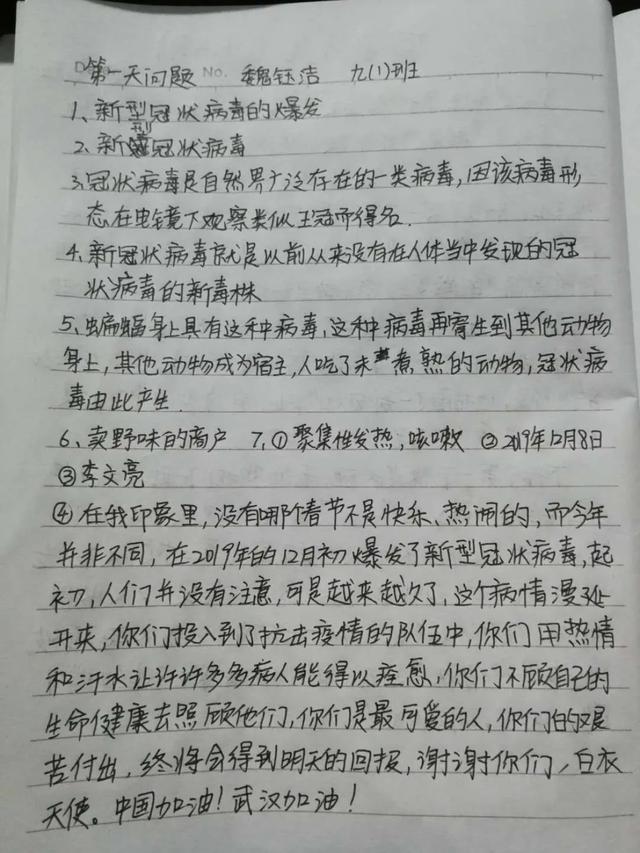 第一天问题 No. 魏钰洁 九(1)班
1、新型冠状病毒的爆发
2、新型冠状病毒
3、冠状病毒是自然界广泛存在的一类病毒，因该病毒形
态在电镜下观察类似王冠而得名.
4、新冠状病毒就是以前从来没有在人体当中发现的冠
状病毒的新毒株
5、蝙蝠身上具有这种病毒，这种病毒再寄生到其他动物
身上，其他动物成为宿主，人吃了未煮熟的动物，冠状病
毒由此产生.
6、卖野味的商户 7、①聚集性发热，咳嗽 ②2019年12月8日
③李文亮
④在我印象里，没有哪个春节不是快乐、热闹的，而今年
并非不同，在2019年的12月初爆发了新型冠状病毒，起
初，人们并没有注意，可是越来越久了，这个病情漫延
开来，你们投入到了抗击疫情的队伍中，你们用热情
和汗水让许许多多病人能得以痊愈，你们不顾自己的
生命健康去照顾他们，你们是最可爱的人，你们的艰
苦付出，终将会得到明天的回报，谢谢你们，白衣
天使。中国加油！武汉加油！